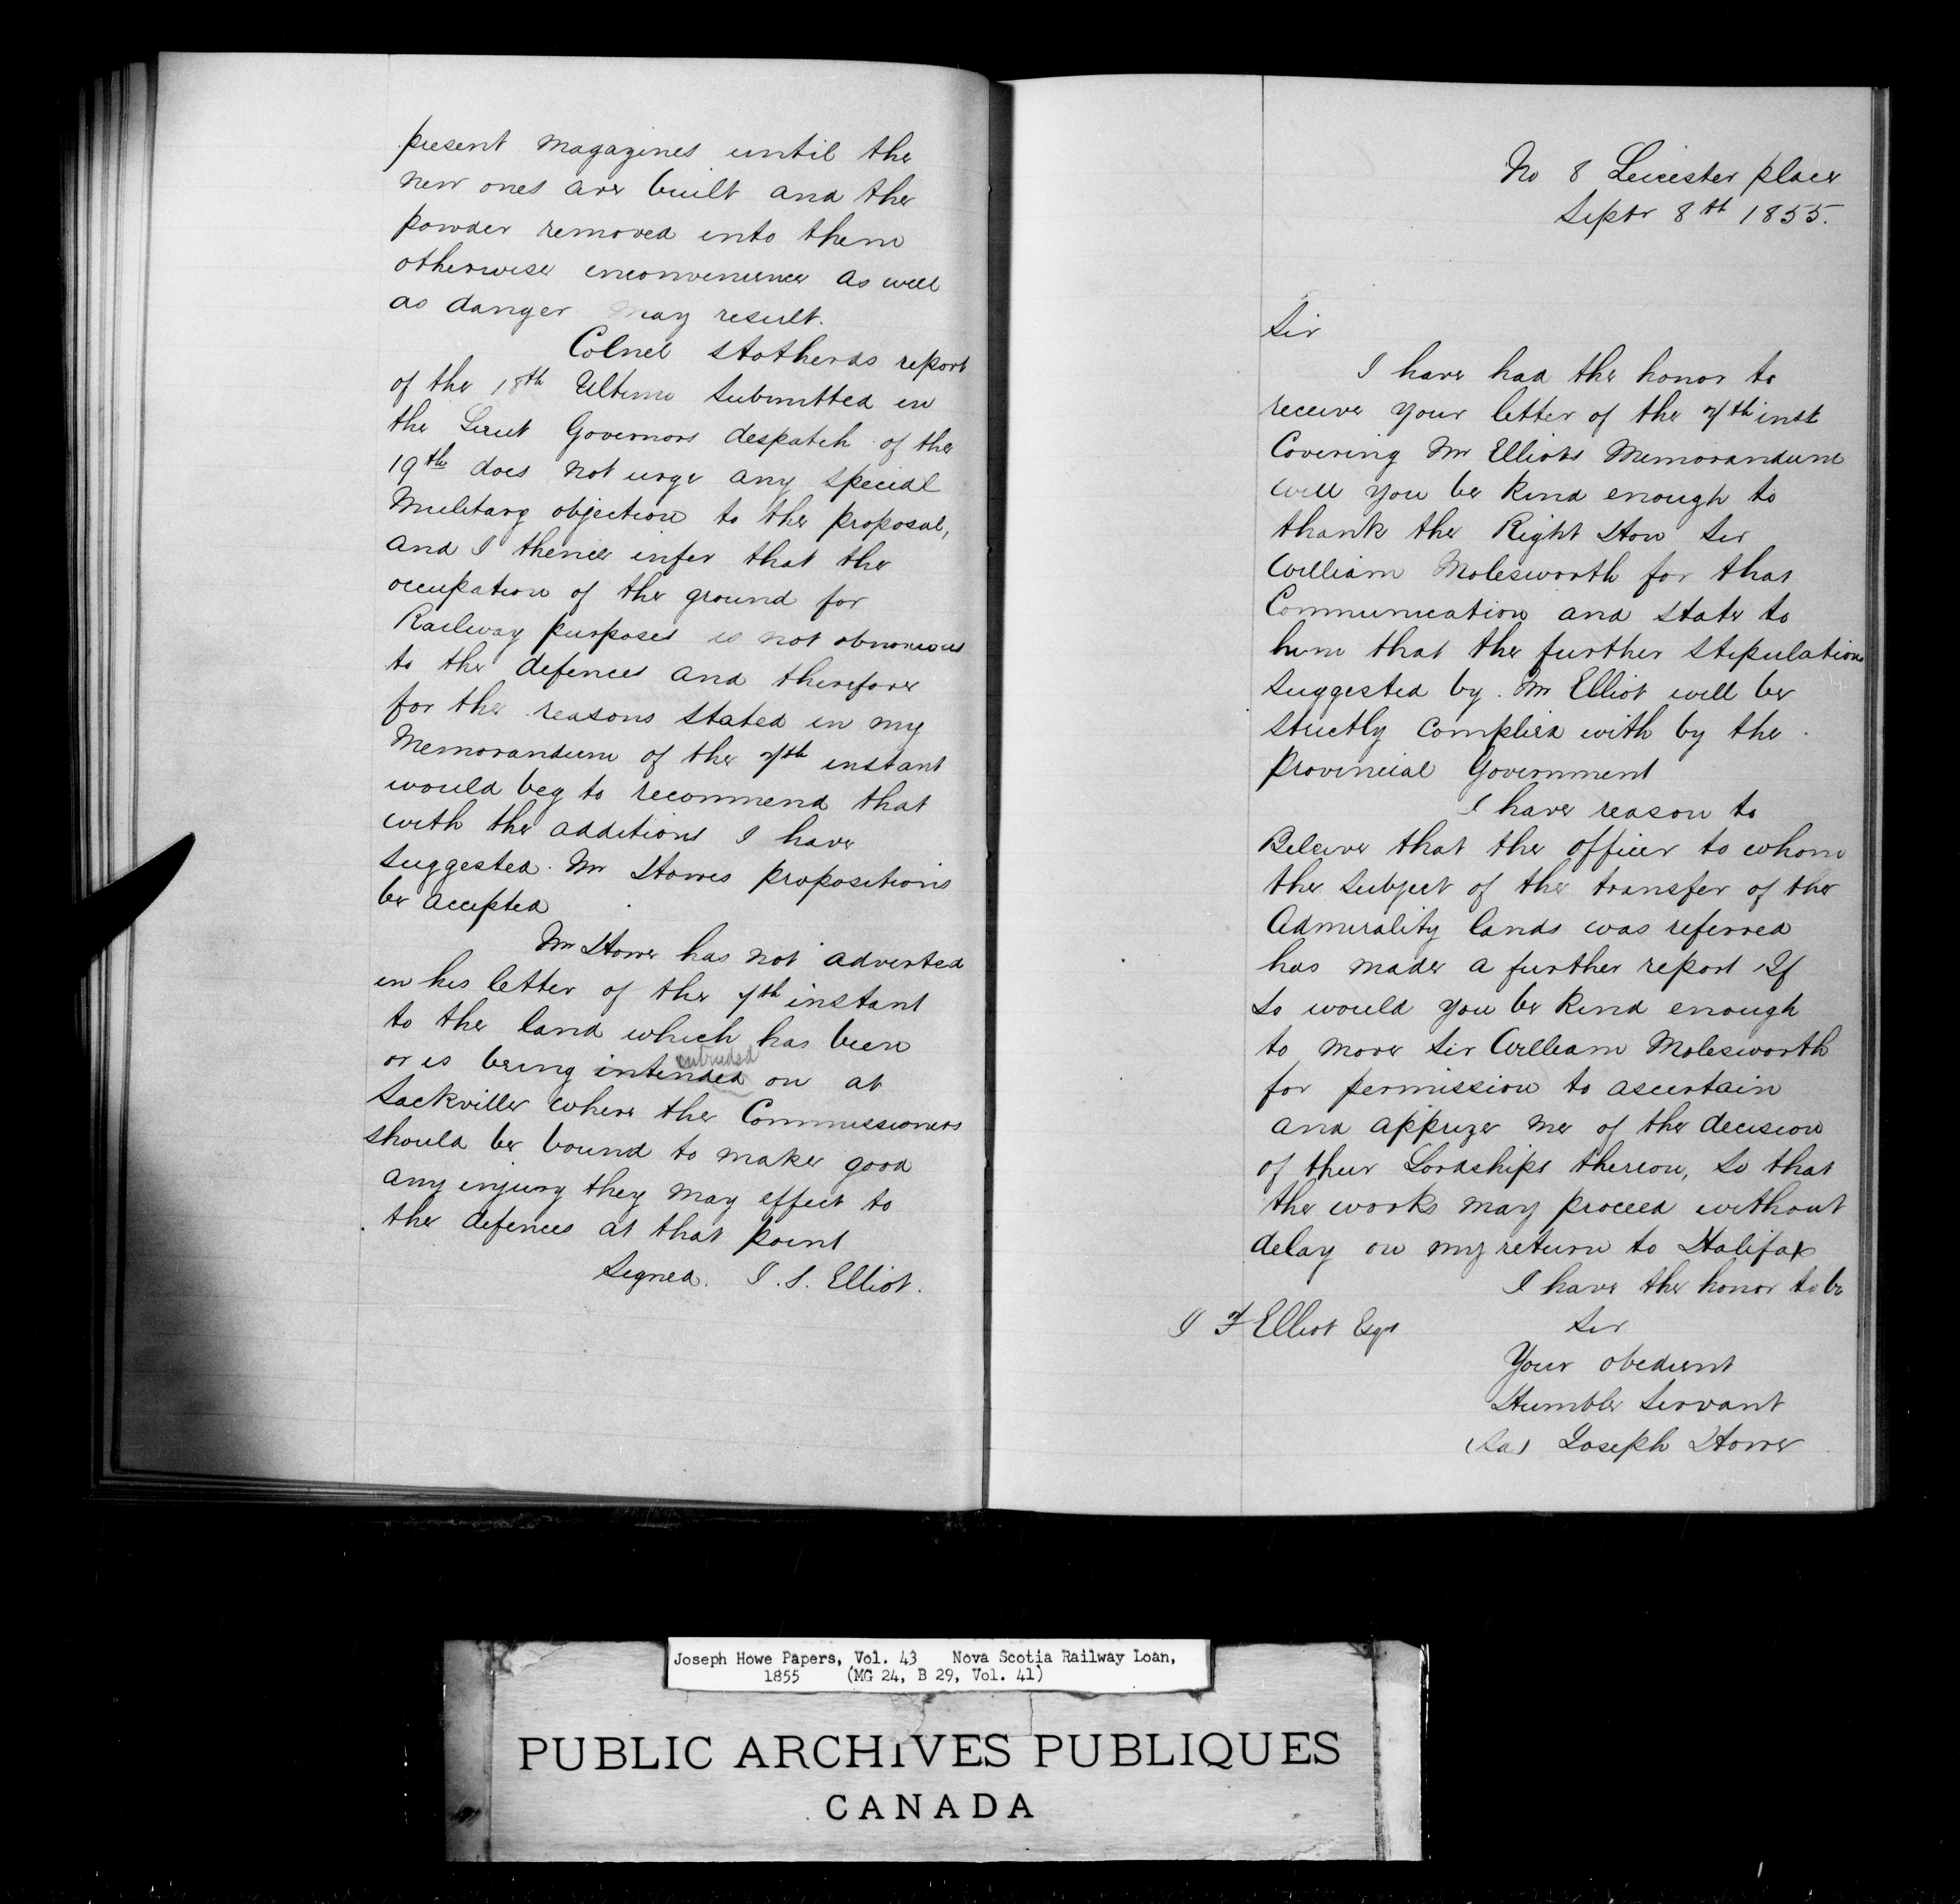 present magazines until the
new ones are built and the
powder removed into them
otherwise inconvenience as well
as danger may result.
Colnel Stotherds report
of the 18th Ultimo submitted in
the Lieut Governors despatch of the
19th does not urge any special
Military objection to the proposal,
and I thence infer that the
occupation of the ground for
Railway purposes is not obnoxious
to the defences and therefore
for the reasons stated in my
Memorandum of the 7th instant
would beg to recommend that
with the additions I have
suggested. Mr Howes propositions
be accepted
Mr Howe has not adverted
in his letter of the 7th instant
to the land which has been
intruded
or is being intended on at
Sackville where the Commissioners
should be bound to make good
any injury they may effect to
the defences at that point
Signed. I. S. Elliot.
No 8 Leicester place
Septr 8th 1855.
Sir
I have had the honor to
receive your letter of the 7th inst
Covering Mr Elliots Memorandum
will you be kind enough to
thank the Right Hon Sir
William Molesworth for that
Communication and state to
him that the further stipulations
suggested by Mr Elliot will be
strictly complied with by the
provincial Government
I have reason to
Beleive that the officer to whom
the subject of the transfer of the
Admirality lands was referred
has made a further report If
so would you be kind enough
to move Sir William Molesworth
for permission to ascertain
and apprize me of the decision
of their Lordships thereon, so that
the works may proceed without
delay on my return to Halifax
I have the honor to be
I F Elliot Esqr Sir
Your obedient
Humble Servant
(Sd) Joseph Howe
Joseph Howe Papers, Vol. 43 Nova Scotia Railway Loan,
1855 (MG 24, B 29, Vol. 41)
PUBLIC ARCHIVES PUBLIQUES
CANADA